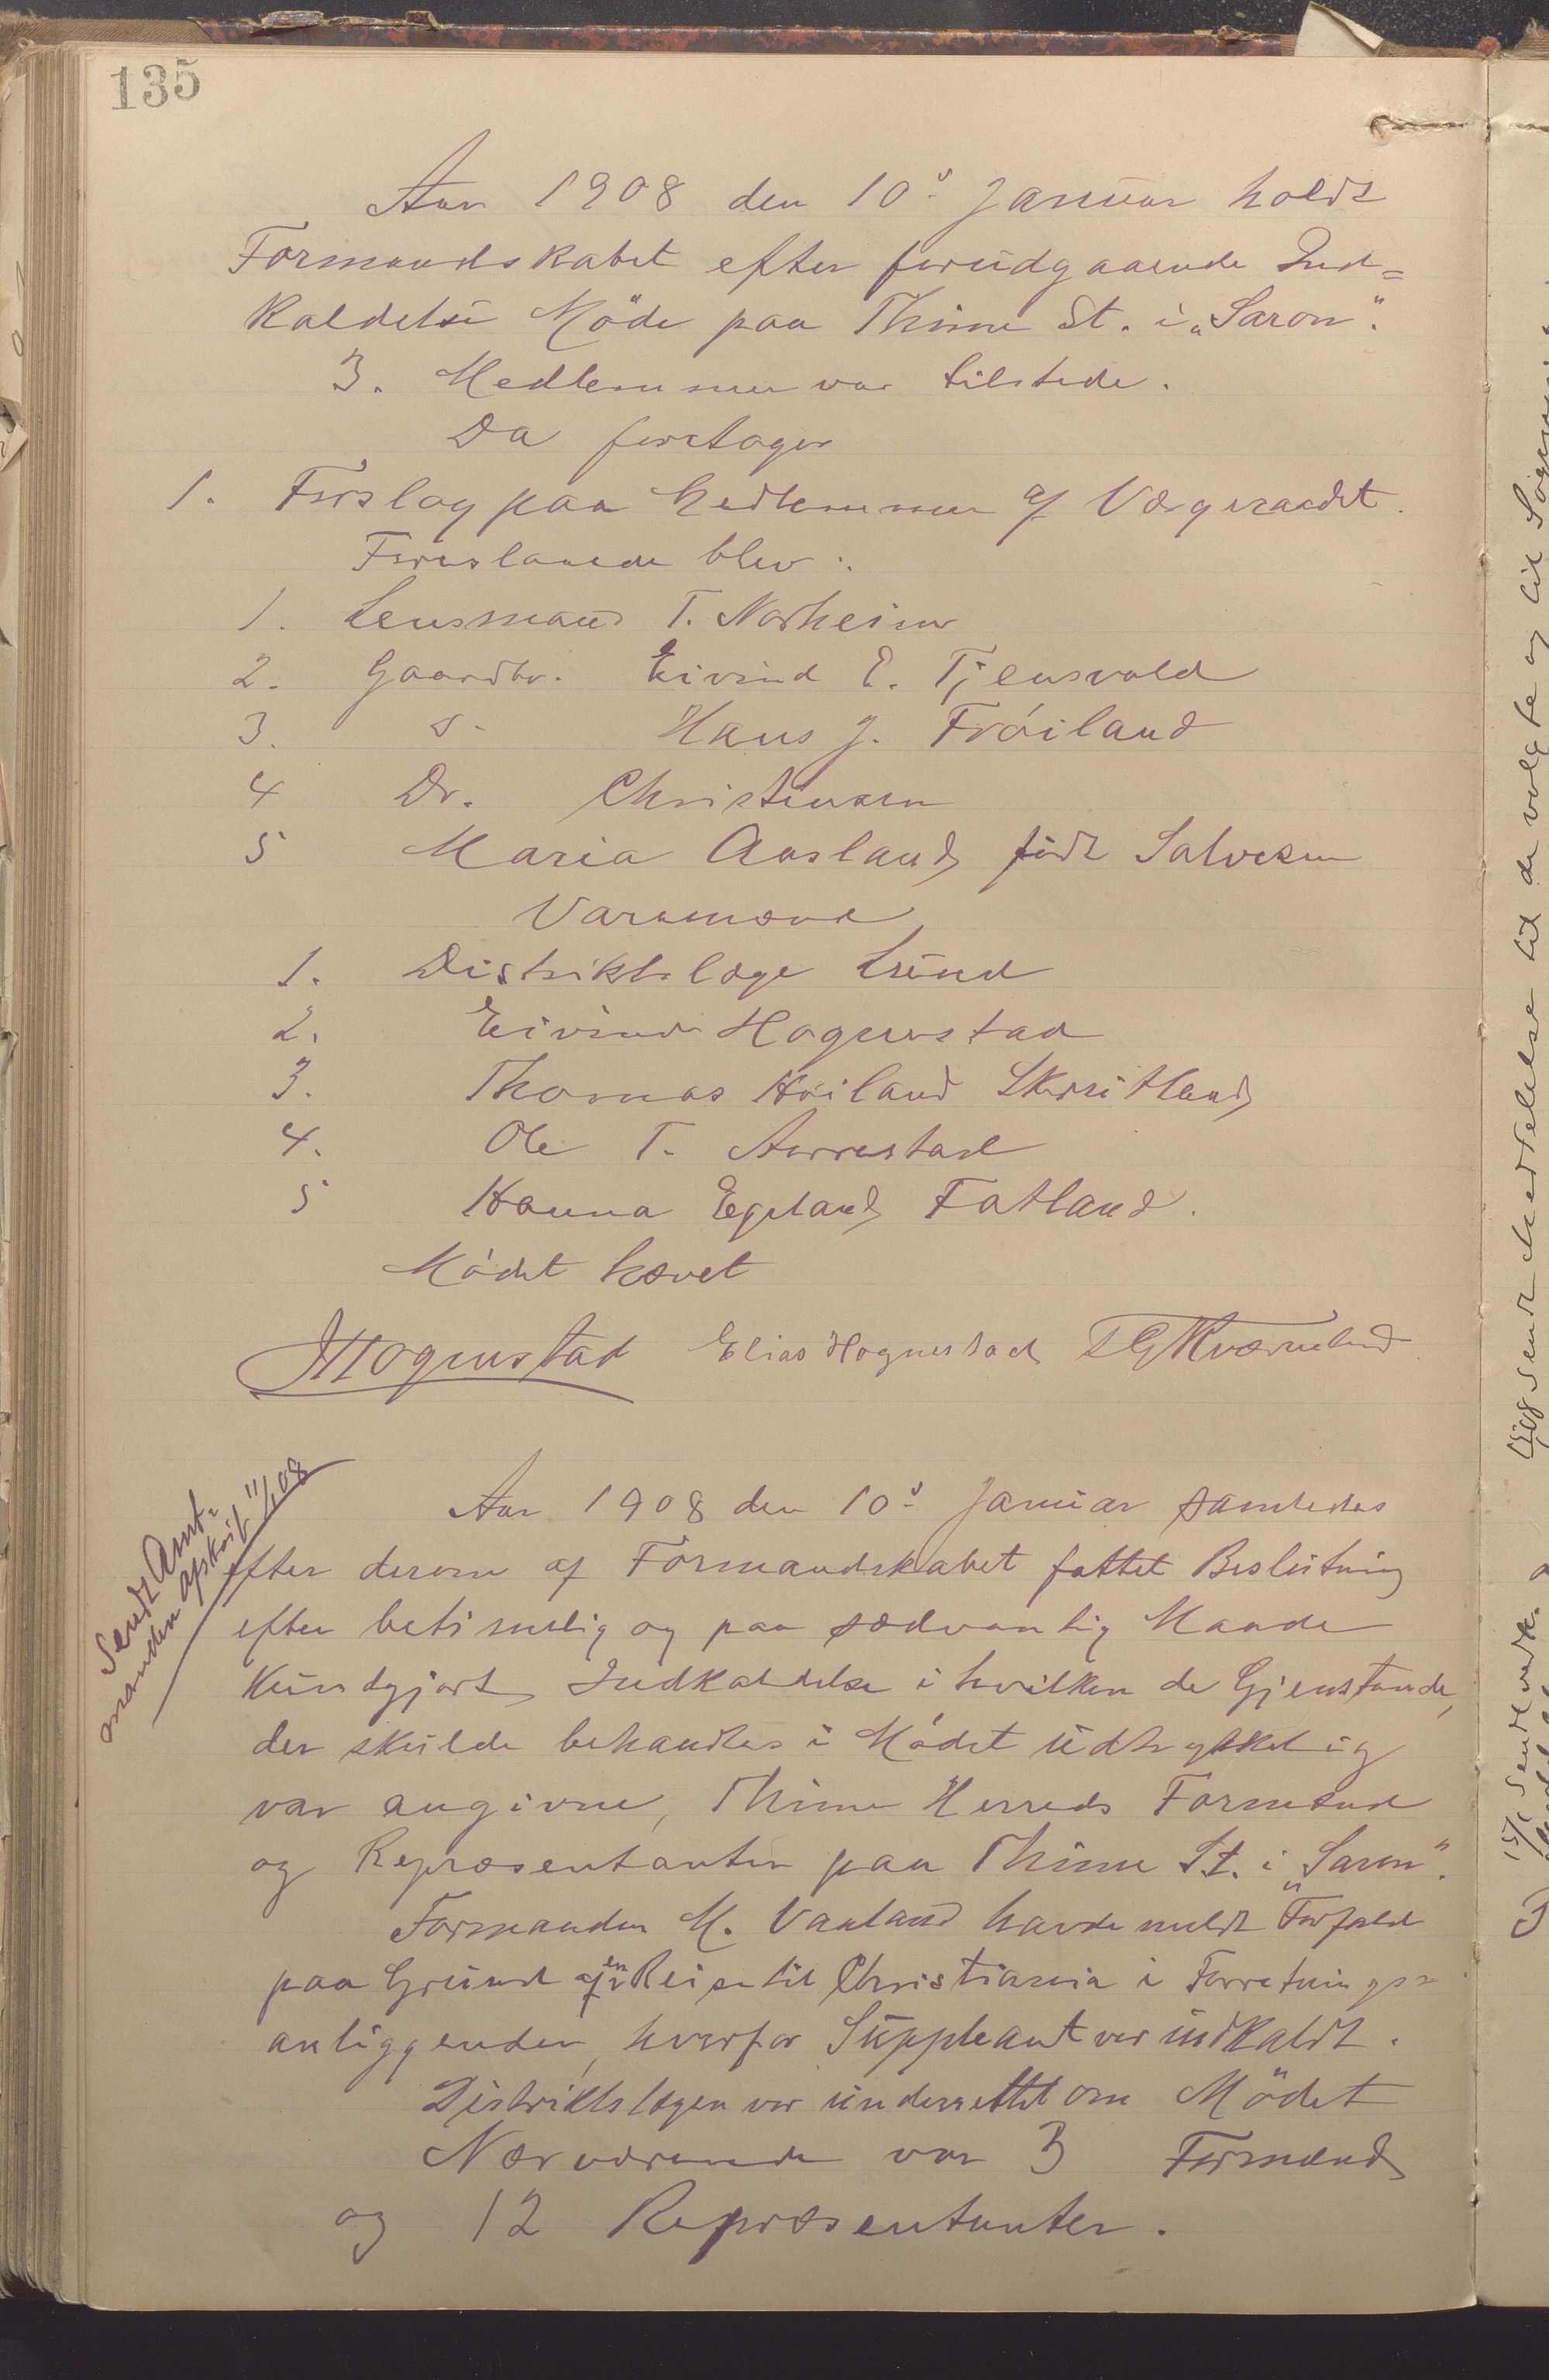 135
Aar 1908 den 10de Januar holdt
Formandskabet efter forudgaaende Ind=
kaldelse Möde paa Thime St. i „Saron".
3. Medlemmer var tilstede.
Da foretoges
1. Forslag paa Medlemmer af Værgeraadet.
Foreslaaede blev:
1. Lensmand T. Norheim
2. Gaardbr. Eivind E. Tjensvold
3. d- Hans J. Fröiland
4 Dr. Christensen
5 Maria Aasland, född Salvesen
Varamænd
1. Distriktslæge Lund
2. Eivind Hognestad
3. Thomas Höiland Skrudland
4. Ole T. Aarrestad
5 Hanna Egeland Fatland.
Mödet hævet
Hognestad Elias Hognestad T G Kværneland
Sendt Amt-
manden afskrift 11/1 08
Aar 1908 den 10de Januar samledes
efter derom af Formandskabet fattet Beslutning
efter betimelig og paa sædvanlig Maade
kundgjort Indkaldelse i hvilken de Gjenstande,
der skulde behandles i Mödet udtrykkelig
var angivne, Thime Herreds Formænd
og Repræsentanter paa Thime St. i „Saron".
Formanden M. Vaaland havde meldt Forfald
paa Grund af en Reise til Christiania i Forretnings=
anliggender, hvorfor Suppleant var indkaldt.
Distriktslægen var underrettet om Mödet
Nærværende var 3 Formænd
og 12 Repræsentanter.